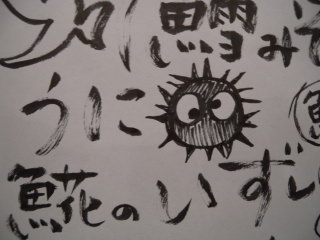 鱈み
うに
𩸽のいずし